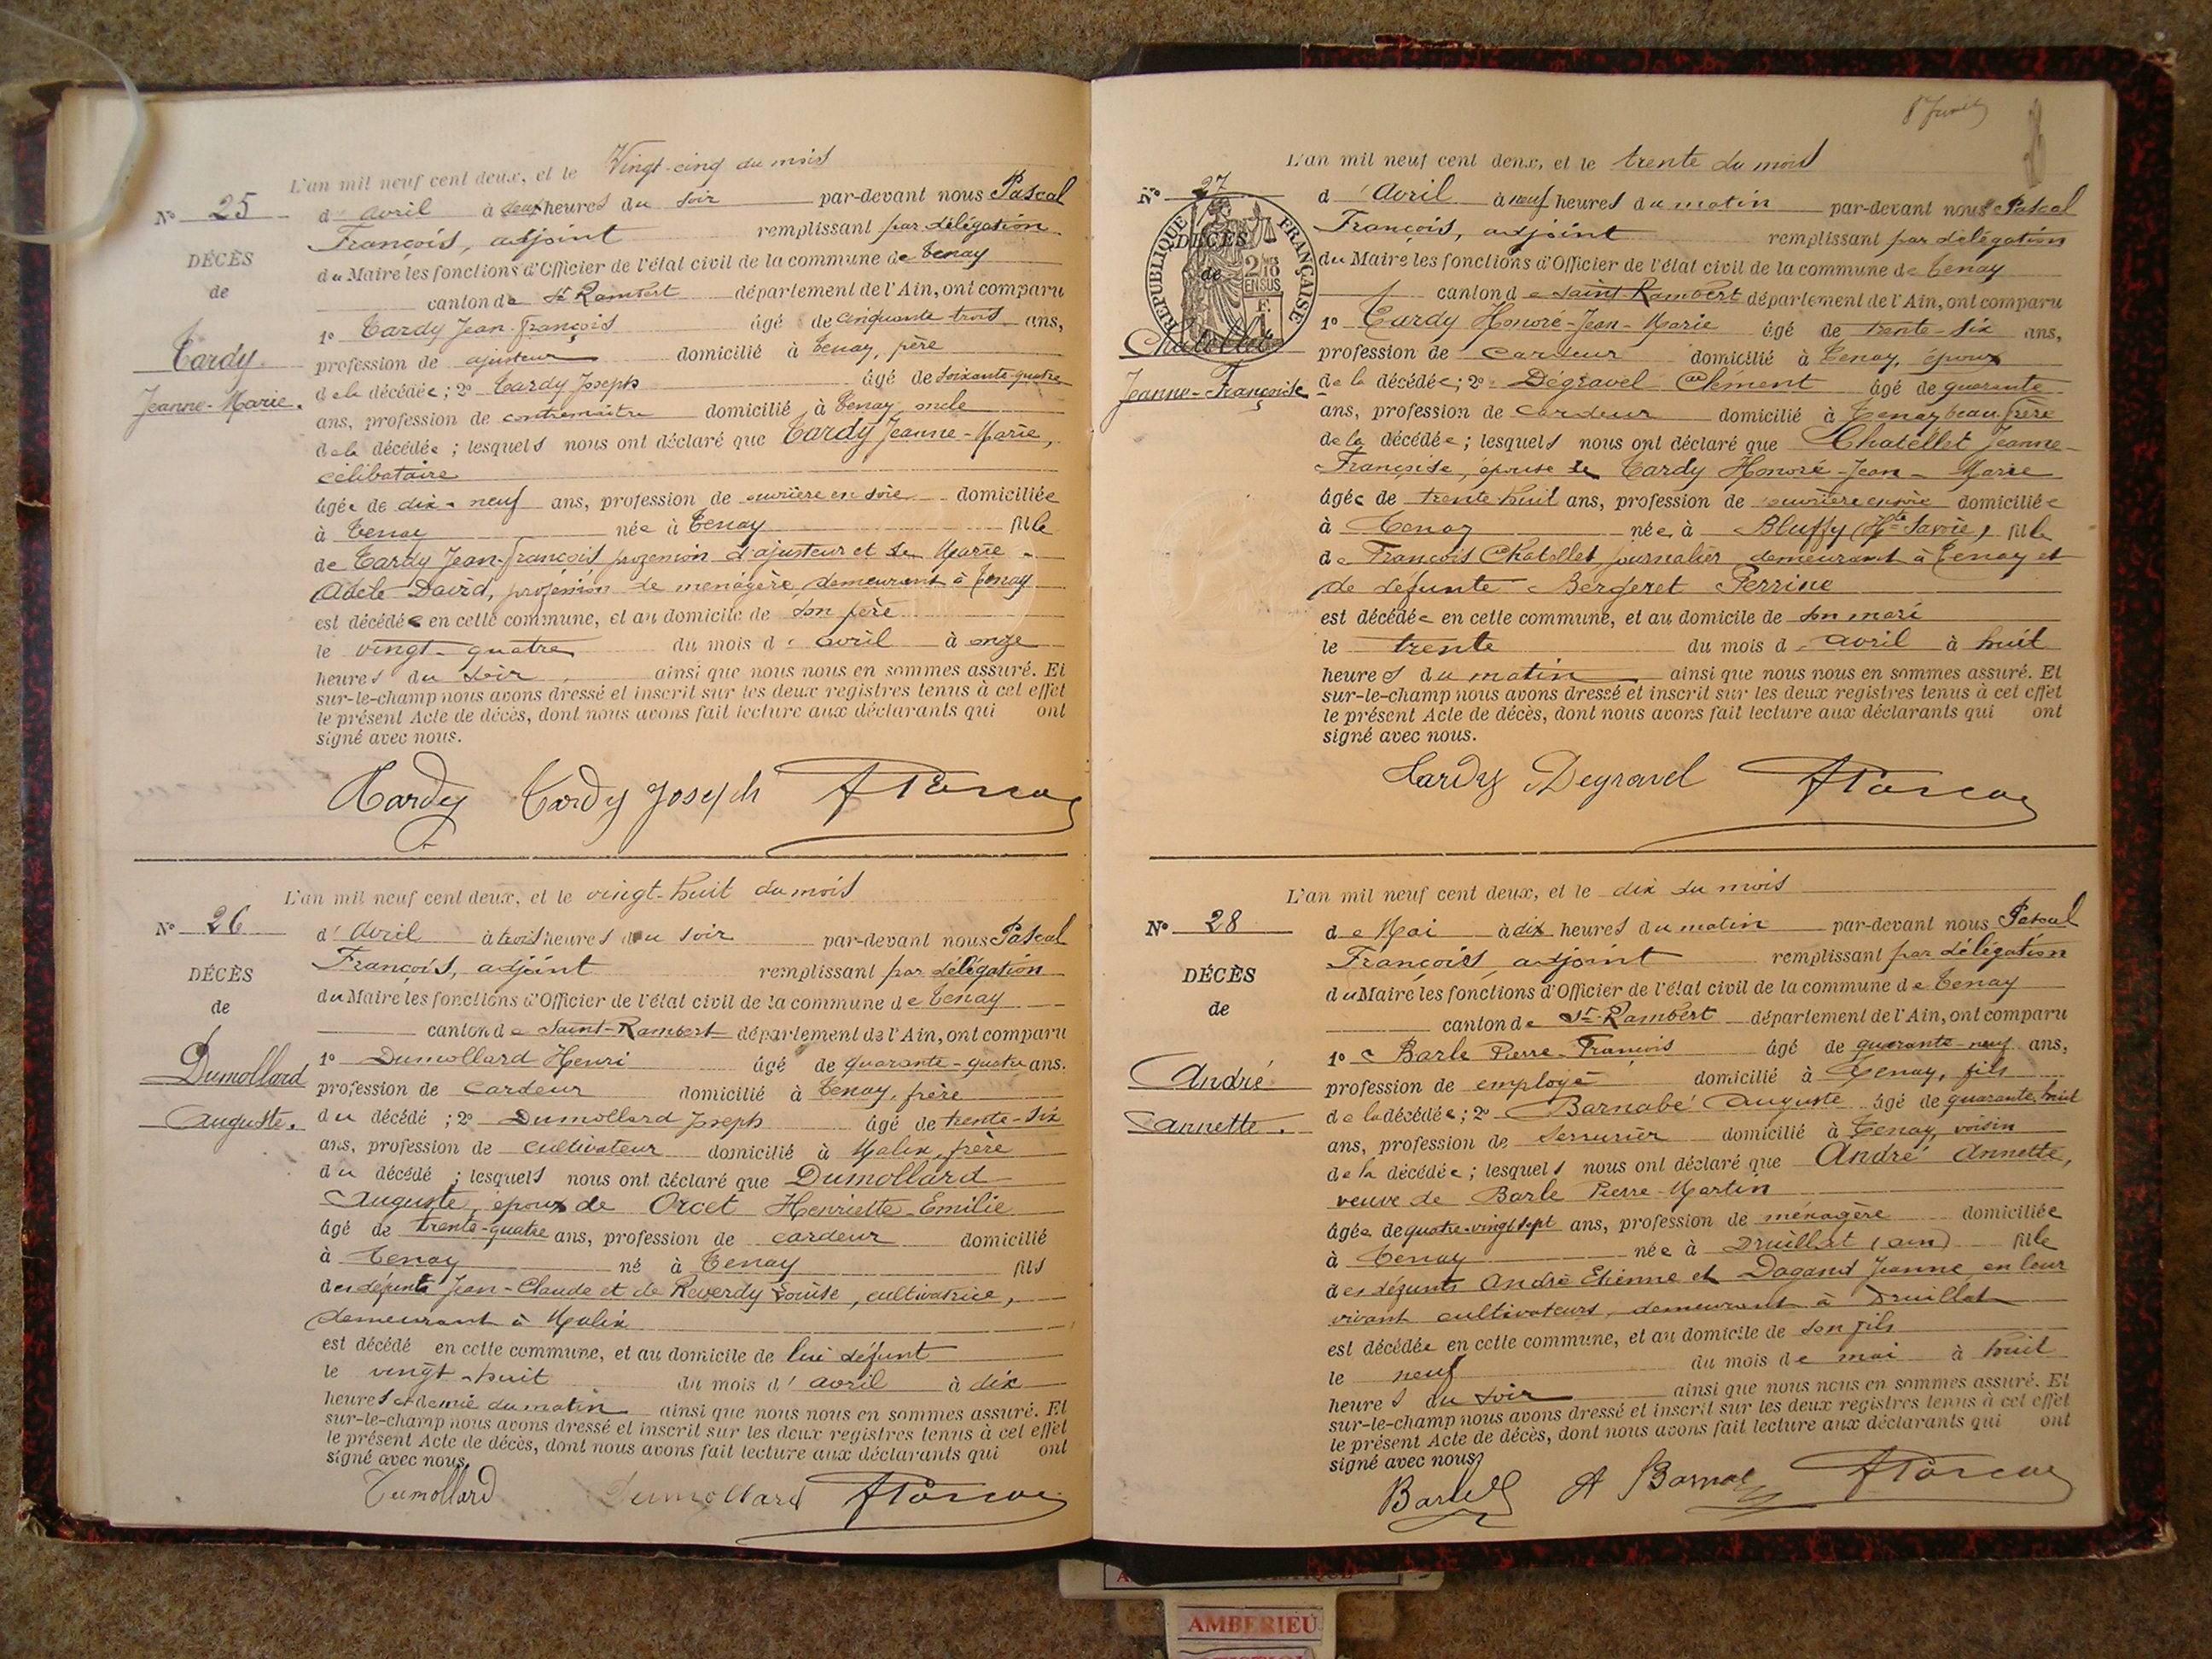 L'an mil neuf cent deux, et le Vingt-cinq du mois
N° 25
d'avril à deux heures du soir par-devant nous Pascal
François, adjoint remplissant par délégation
DÉCÈS
de
Tardy
Jeanne-Marie.
du Maire les fonctions d'Officier de l'état civil de la commune de Tenay
canton de St Rambert département de l'Ain, ont comparu
1° Tardy Jean-François âgé de cinquante trois ans,
profession de ajusteur domicilié à Tenay, père
de la décédée ; 2° Tardy Joseph âgé de soixante-quatre
ans, profession de contremaître domicilié à Tenay, oncle
de la décédée ; lesquels nous ont déclaré que Tardy Jeanne-Marie,
célibataire
âgée de dix-neuf ans, profession de ouvrière en soie domiciliée
à Tenay née à Tenay fille
de Tardy Jean-François profession d'ajusteur et de Marie-
Adèle David, profession de ménagère, demeurant à Tenay
est décédée en cette commune, et au domicile de son père
le vingt-quatre du mois d'avril à onze
heures du soir ainsi que nous nous en sommes assuré. Et
sur-le-champ nous avons dressé et inscrit sur les deux registres tenus à cet effet
le présent Acte de décès, dont nous avons fait lecture aux déclarants qui ont
signé avec nous.
Tardy Tardy Joseph
L'an mil neuf cent deux, et le vingt-huit du mois
N° 26
d'Avril à trois heures du soir par-devant nous Pascal
François, adjoint remplissant par délégation
DÉCÈS
de
Dumollard
Auguste.
du Maire les fonctions d'Officier de l'état civil de la commune de Tenay
canton de Saint-Rambert département de l'Ain, ont comparu
1° Dumollard Henri âgé de quarante-quatre ans.
profession de cardeur domicilié à Tenay, frère
du décédé ; 2° Dumollard Joseph âgé de trente-six
ans, profession de cultivateur domicilié à Malix, frère
du décédé ; lesquels nous ont déclaré que Dumollard
Auguste, époux de Orcet Henriette-Emilie
âgé de trente-quatre ans, profession de cardeur domicilié
à Tenay né à Tenay fils
des défunts Jean-Claude et de Reverdy Louise, cultivatrice,
demeurant à Malix
est décédé en cette commune, et au domicile de lui défunt
le vingt-huit du mois d'avril à dix
heures et demie du matin ainsi que nous nous en sommes assuré. Et
sur-le-champ nous avons dressé et inscrit sur les deux registres tenus à cet effet
le présent Acte de décès, dont nous avons fait lecture aux déclarants qui ont
signé avec nous.
Dumollard Dumollard
L'an mil neuf cent deux, et le trente du mois
N° 27
d'Avril à neuf heures du matin par-devant nous Pascal
François, adjoint remplissant par délégation
RÉPUBLIQUE FRANÇAISE
DÉCÈS
de
Chatellet
Jeanne-Françoise
du Maire les fonctions d'Officier de l'état civil de la commune de Tenay
canton de Saint-Rambert département de l'Ain, ont comparu
1° Tardy Honoré-Jean-Marie âgé de trente-six ans,
profession de cardeur domicilié à Tenay, époux
de la décédée ; 2° Dégravel Clément âgé de quarante
ans, profession de cardeur domicilié à Tenay beau-frère
de la décédée ; lesquels nous ont déclaré que Chatellet Jeanne-
Françoise, épouse de Tardy Honoré-Jean-Marie
âgée de trente-huit ans, profession de ouvrière en soie domiciliée
à Tenay née à Bluffy (Hte-Savoie), fille
de François Chatellet journalier demeurant à Tenay et
de défunte Bergeret Perrine
est décédée en cette commune, et au domicile de son mari
le trente du mois d'avril à huit
heures du matin ainsi que nous nous en sommes assuré. Et
sur-le-champ nous avons dressé et inscrit sur les deux registres tenus à cet effet
le présent Acte de décès, dont nous avons fait lecture aux déclarants qui ont
signé avec nous.
Tardy Degravel
L'an mil neuf cent deux, et le dix du mois
N° 28
de Mai à dix heures du matin par-devant nous Pascal
François, adjoint remplissant par délégation
DÉCÈS
de
André
Annette.
du Maire les fonctions d'Officier de l'état civil de la commune de Tenay
canton de St-Rambert département de l'Ain, ont comparu
1° Barle Pierre-François âgé de quarante-neuf ans,
profession de employé domicilié à Tenay, fils
de la décédée ; 2° Barnabé Auguste âgé de quarante huit
ans, profession de serrurier domicilié à Tenay, voisin
de la décédée ; lesquels nous ont déclaré que André Annette,
veuve de Barle Pierre-Martin
âgée de quatre-vingt sept ans, profession de ménagère domiciliée
à Tenay née à Druillat (Ain) fille
des défunts André Etienne et Dagand Jeanne en leur
vivant cultivateurs, demeurant à Druillat
est décédée en cette commune, et au domicile de son fils
le neuf du mois de mai à huit
heures du soir ainsi que nous nous en sommes assuré. Et
sur-le-champ nous avons dressé et inscrit sur les deux registres tenus à cet effet
le présent Acte de décès, dont nous avons fait lecture aux déclarants qui ont
signé avec nous.
AMBERIEU